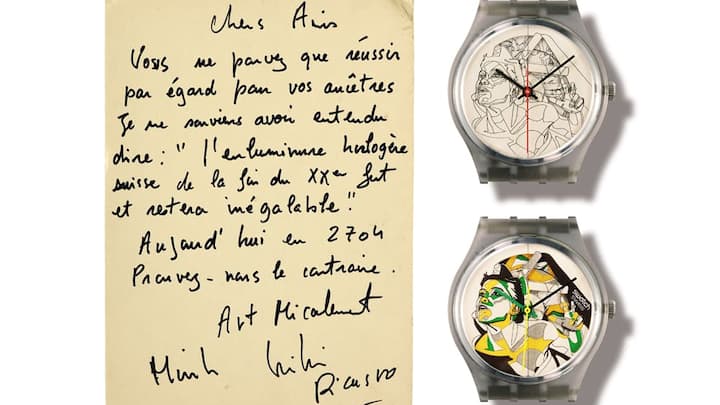 Chers Amis
Vous ne pouvez que réussir
par égard pour vos ancêtres
Je me souviens avoir entendu
dire : "l'enluminure horlogère
suisse de la fin du XXem fut
et restera inégalable".
Aujourd'hui en 2704
Prouvez-nous le contraire.
Art Micalement
Picasso
swatch